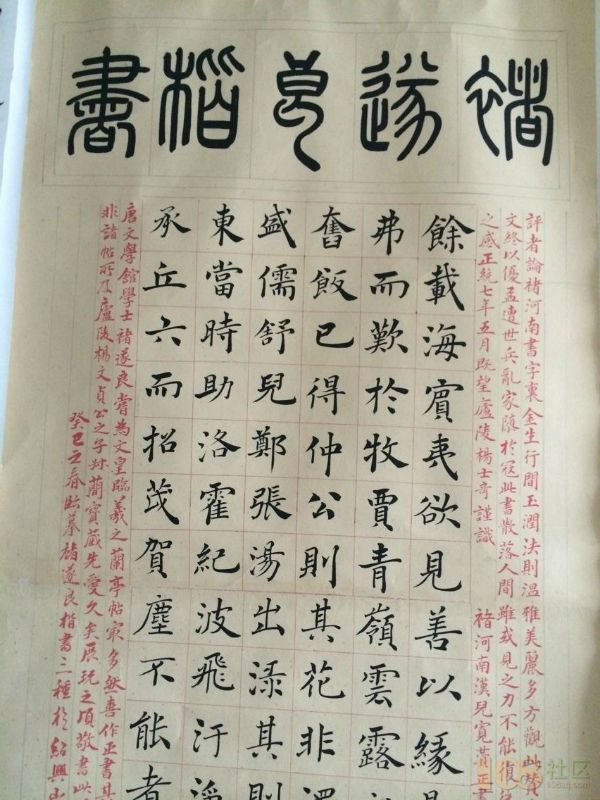 褚遂良楷書
評者論褚河南書字裏金生行間玉潤法則溫雅美麗多方觀此贊
文終以優孟遭世兵亂家隨於寇此書散落人間雖或見之力不能復
之感正統七年五月既望廬陵楊士奇謹識 褚河南漢兒寬贊正書
餘載海賓夷欲見善以緣
弗而歎於牧賈青嶺雲露
奮飯已得仲公則其花非
盛儒舒兒鄭張湯出淥其則
東當時助洛霍紀波飛汗淨
承丘六而招茂賀塵不能者
唐文學館學士褚遂良嘗為文皇臨羲之蘭亭帖最多然喜作正書其
非諸帖所及廬陵楊文貞公之子寶藏先愛久矣展玩之頃敬書此
癸巳之春臨摹褚遂良楷書二種於紹興
社区